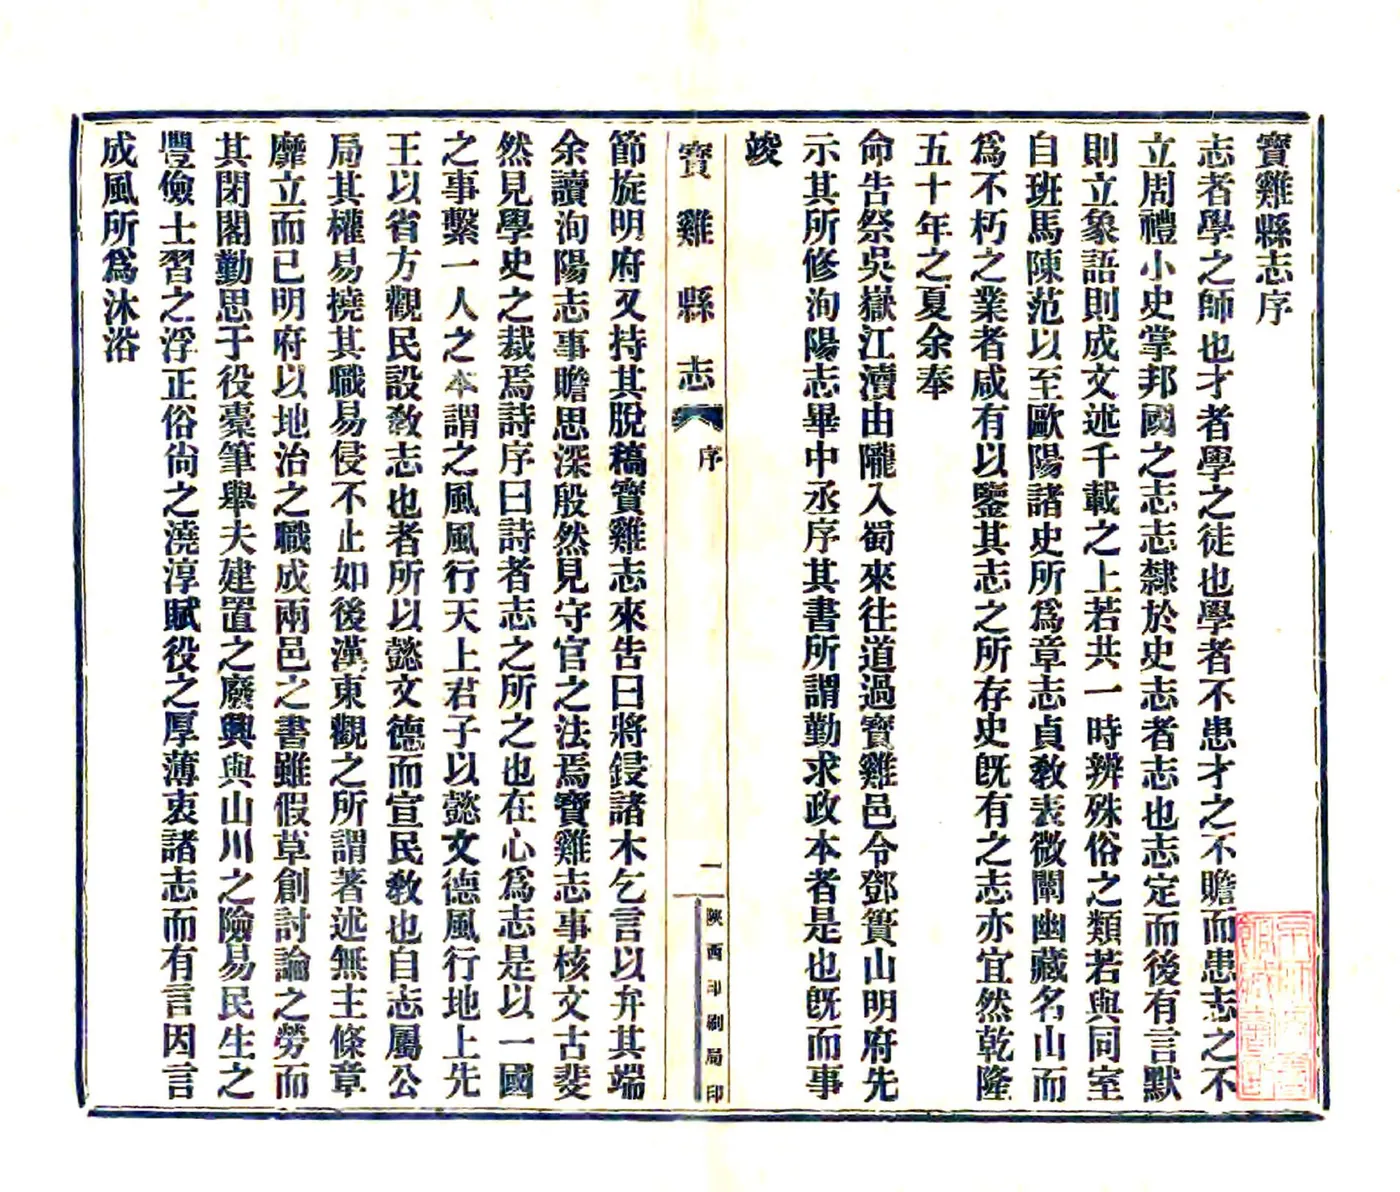 寶雞縣志序
志者學之師也才者學之徒也學者不患才之不贍而患志之不
立周禮小史掌邦國之志志隸於史志者志也志定而後有言默
則立象語則成文述千載之上若共一時辨殊俗之類若與同室
自班馬陳范以至歐陽諸史所爲章志貞敎表微闡幽藏名山而
爲不朽之業者咸有以鑒其志之所存史旣有之志亦宜然乾隆
五十年之夏余奉
命告祭吳嶽江瀆由隴入蜀來往道過寶雞邑令鄧簣山明府先
示其所修洵陽志畢中丞序其書所謂勤求政本者是也旣而事
竣
寶雞縣志
序
一
陝西印刷局印
節旋明府又持其脫稿寶雞志來告曰將鋟諸木乞言以弁其端
余讀洵陽志事贍思深殷然見守官之法焉寶雞志事核文古斐
然見學史之裁焉詩序曰詩者志之所之也在心爲志是以一國
之事繫一人之本謂之風風行天上君子以懿文德風行地上先
王以省方觀民設敎志也者所以懿文德而宣民敎也自志屬公
局其權易撓其職易侵不止如後漢東觀之所謂著述無主條章
靡立而已明府以地治之職成兩邑之書雖假草創討論之勞而
其閉閣勤思于役橐筆舉夫建置之廢興與山川之險易民生之
豐儉士習之浮正俗尙之澆淳賦役之厚薄衷諸志而有言因言
成風所爲沐浴